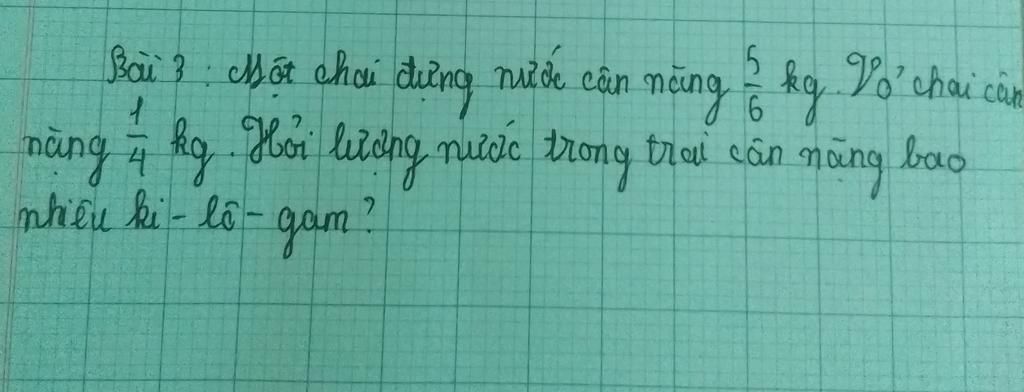 Bài 3 : Một chai đựng nước cân nặng 5/6 kg. Vỏ chai cân
nặng 1/4 kg. Hỏi lượng nước trong trai cân nặng bao
nhiêu ki-lô-gam?